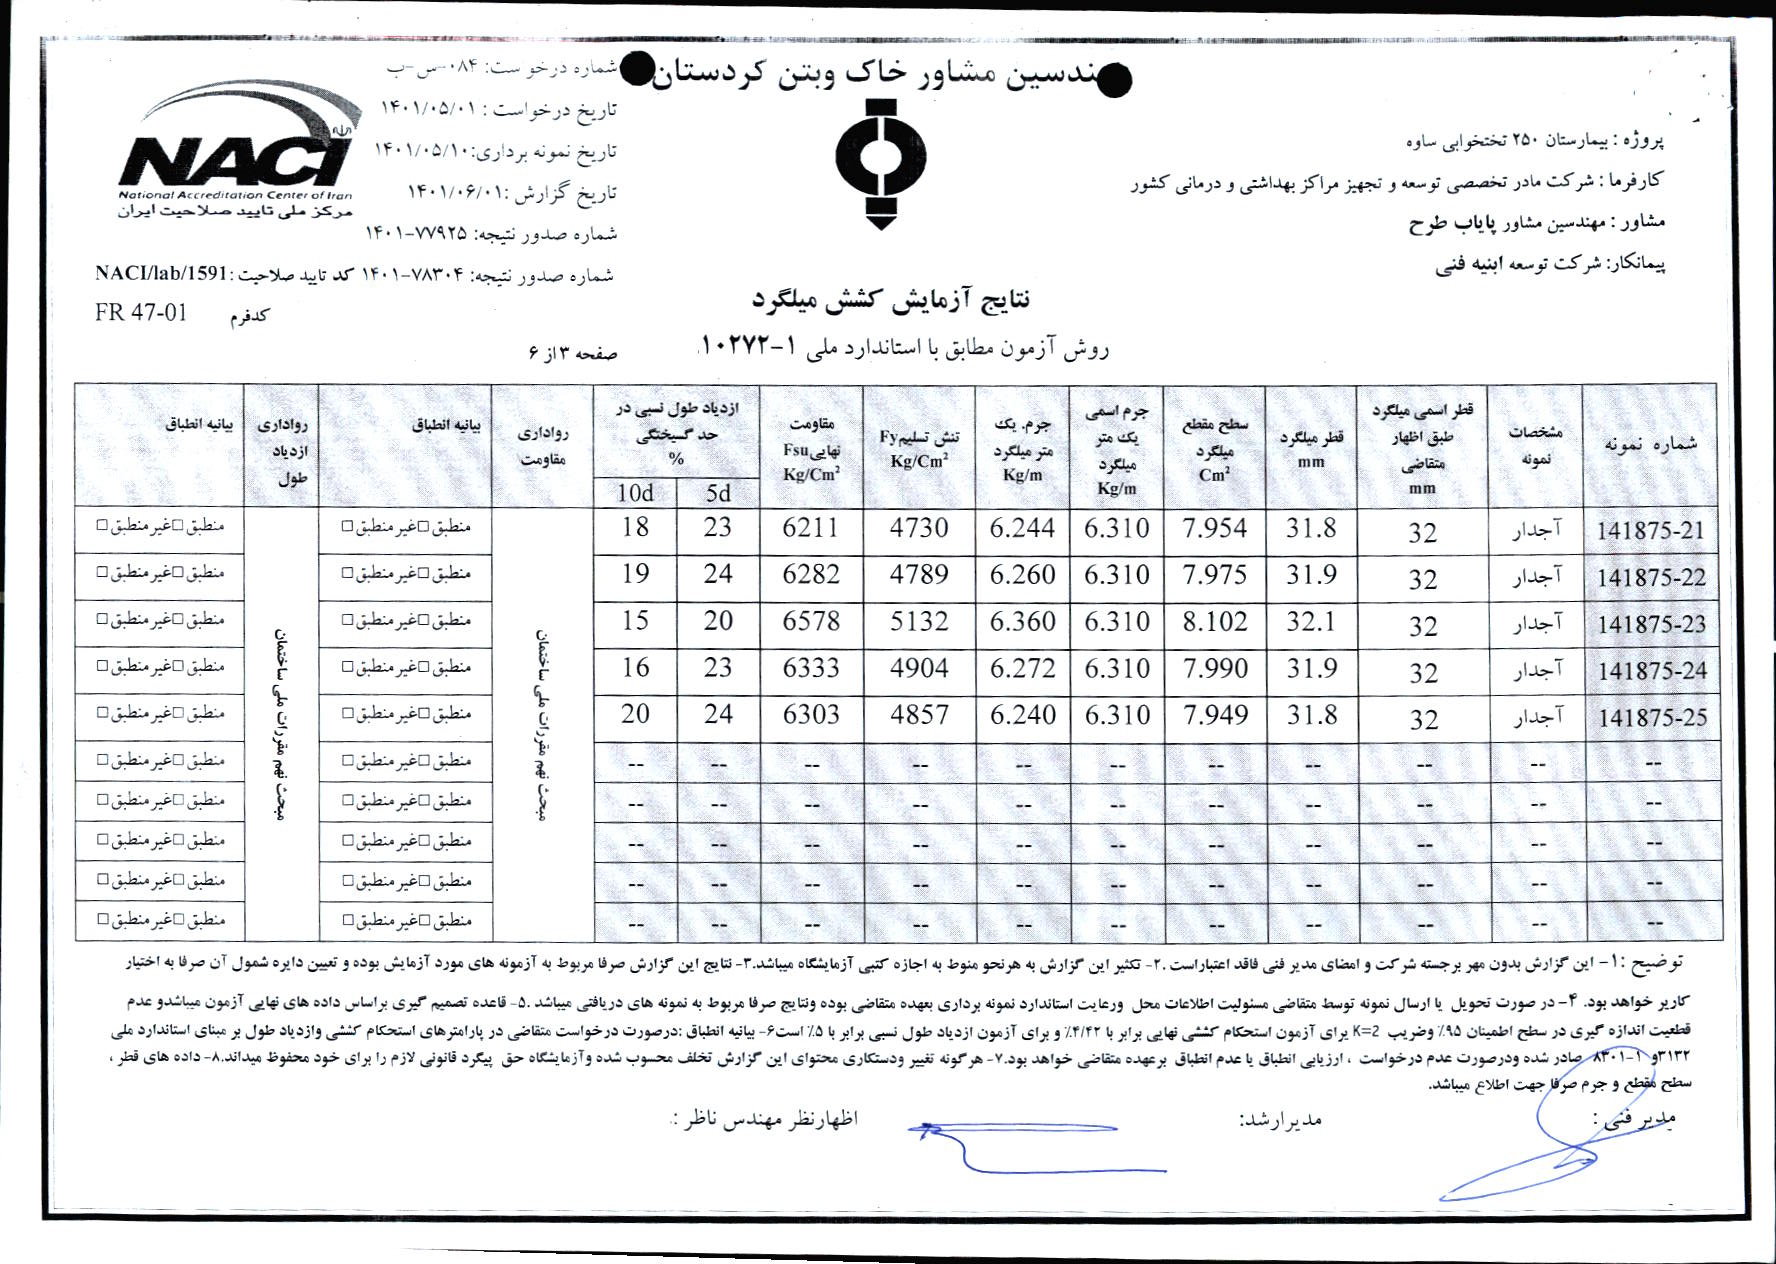 ندسین مشاور خاک وبتن کردستان
شماره درخواست: ۰۸۴-س-ب
تاریخ درخواست : ۱۴۰۱/۰۵/۰۱
تاریخ نمونه برداری:۱۴۰۱/۰۵/۱۰
تاریخ گزارش :۱۴۰۱/۰۶/۰۱
شماره صدور نتیجه: ۷۷۹۲۵-۱۴۰۱
شماره صدور نتیجه: ۷۸۳۰۴-۱۴۰۱ کد تایید صلاحیت :NACI/lab/1591
کدفرم FR 47-01
NACI
National Accreditation Center of Iran
مرکز ملی تایید صلاحیت ایران
پروژه : بیمارستان ۲۵۰ تختخوابی ساوه
کارفرما : شرکت مادر تخصصی توسعه و تجهیز مراکز بهداشتی و درمانی کشور
مشاور : مهندسین مشاور پایاب طرح
پیمانکار: شرکت توسعه ابنیه فنی
نتایج آزمایش کشش میلگرد
روش آزمون مطابق با استاندارد ملی ۱-۱۰۲۷۲
صفحه ۳ از ۶
شماره نمونه | مشخصات نمونه | قطر اسمی میلگرد طبق اظهار متقاضی mm | قطر میلگرد mm | سطح مقطع میلگرد Cm² | جرم اسمی یک متر میلگرد Kg/m | جرم. یک متر میلگرد Kg/m | تنش تسلیم Fy Kg/Cm² | مقاومت نهایی Fsu Kg/Cm² | ازدیاد طول نسبی در حد گسیختگی % 5d | 10d | رواداری مقاومت | بیانیه انطباق | رواداری ازدیاد طول | بیانیه انطباق
141875-21 | آجدار | 32 | 31.8 | 7.954 | 6.310 | 6.244 | 4730 | 6211 | 23 | 18 | مبحث نهم مقررات ملی ساختمان | منطبق□غیر منطبق□ | مبحث نهم مقررات ملی ساختمان | منطبق□غیر منطبق□
141875-22 | آجدار | 32 | 31.9 | 7.975 | 6.310 | 6.260 | 4789 | 6282 | 24 | 19 | منطبق□غیر منطبق□ | منطبق□غیر منطبق□
141875-23 | آجدار | 32 | 32.1 | 8.102 | 6.310 | 6.360 | 5132 | 6578 | 20 | 15 | منطبق□غیر منطبق□ | منطبق□غیر منطبق□
141875-24 | آجدار | 32 | 31.9 | 7.990 | 6.310 | 6.272 | 4904 | 6333 | 23 | 16 | منطبق□غیر منطبق□ | منطبق□غیر منطبق□
141875-25 | آجدار | 32 | 31.8 | 7.949 | 6.310 | 6.240 | 4857 | 6303 | 24 | 20 | منطبق□غیر منطبق□ | منطبق□غیر منطبق□
-- | -- | -- | -- | -- | -- | -- | -- | -- | -- | -- | منطبق□غیر منطبق□ | منطبق□غیر منطبق□
-- | -- | -- | -- | -- | -- | -- | -- | -- | -- | -- | منطبق□غیر منطبق□ | منطبق□غیر منطبق□
-- | -- | -- | -- | -- | -- | -- | -- | -- | -- | -- | منطبق□غیر منطبق□ | منطبق□غیر منطبق□
-- | -- | -- | -- | -- | -- | -- | -- | -- | -- | -- | منطبق□غیر منطبق□ | منطبق□غیر منطبق□
-- | -- | -- | -- | -- | -- | -- | -- | -- | -- | -- | منطبق□غیر منطبق□ | منطبق□غیر منطبق□
توضیح :۱- این گزارش بدون مهر برجسته شرکت و امضای مدیر فنی فاقد اعتباراست .۲- تکثیر این گزارش به هرنحو منوط به اجازه کتبی آزمایشگاه میباشد.۳- نتایج این گزارش صرفا مربوط به آزمونه های مورد آزمایش بوده و تعیین دایره شمول آن صرفا به اختیار
کاربر خواهد بود. ۴- در صورت تحویل یا ارسال نمونه توسط متقاضی مسئولیت اطلاعات محل ورعایت استاندارد نمونه برداری بعهده متقاضی بوده ونتایج صرفا مربوط به نمونه های دریافتی میباشد .۵- قاعده تصمیم گیری براساس داده های نهایی آزمون میباشدو عدم
قطعیت اندازه گیری در سطح اطمینان ۹۵٪ وضریب K=2 برای آزمون استحکام کششی نهایی برابر با ۴/۴۲٪ و برای آزمون ازدیاد طول نسبی برابر با ۵٪ است۶- بیانیه انطباق :درصورت درخواست متقاضی در پارامترهای استحکام کششی وازدیاد طول بر مبنای استاندارد ملی
۳۱۳۲و ۱-۸۳۰۱ صادر شده ودرصورت عدم درخواست ، ارزیابی انطباق یا عدم انطباق برعهده متقاضی خواهد بود.۷- هرگونه تغییر ودستکاری محتوای این گزارش تخلف محسوب شده وآزمایشگاه حق پیگرد قانونی لازم را برای خود محفوظ میداند.۸- داده های قطر ،
سطح مقطع و جرم صرفا جهت اطلاع میباشد.
مدیر فنی : مدیرارشد: اظهارنظر مهندس ناظر :